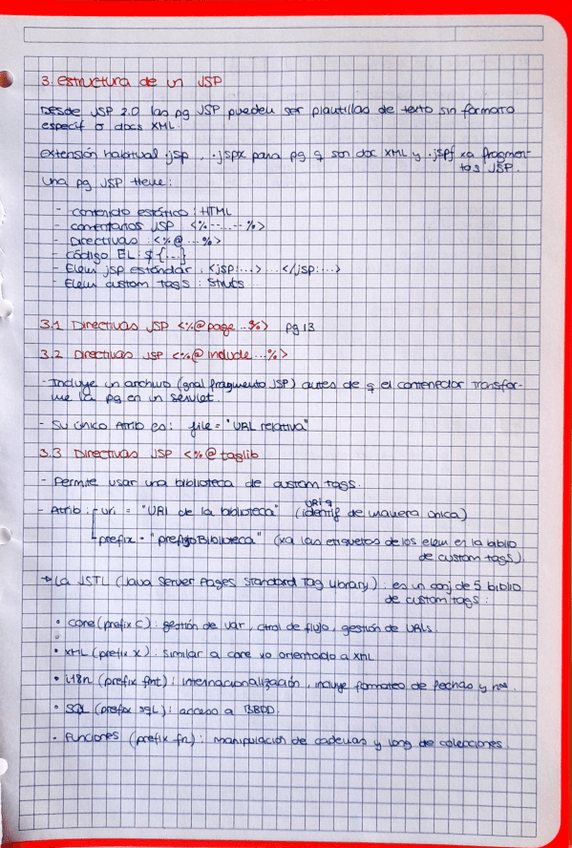 3. Estructura de un JSP
Desde JSP 2.0 las pg JSP pueden ser plantillas de texto sin formato
especif o docs XML.
Extensión habitual .jsp, .jspx para pg q son doc XML y .jspf xa fragmen-
tos JSP.
Una pg JSP tiene:
- Contenido estático: HTML
- Comentarios JSP <%-- ... --%>
- Directivas: <%@ ... %>
- Código EL: ${...}
- Elem jsp estándar: <jsp:...> ... </jsp:...>
- Elem custom tags: Struts
3.1 Directivas JSP <%@ page ... %> pg 13
3.2 Directivas JSP <%@ include ... %>
- Incluye un archivo (gnal fragmento JSP) antes de q el contenedor transfor-
me la pg en un servlet.
- Su único Atrib es: file = "URL relativa"
3.3 Directivas JSP <%@ taglib
- Permite usar una biblioteca de custom tags.
- Atrib: uri = "URI de la biblioteca" (URI q identif de manera única)
prefix = "prefijoBiblioteca" (xa las etiquetas de los elem en la biblio
de custom tags).
→ La JSTL (Java Server Pages Standard Tag Library): es un conj de 5 biblio
de custom tags:
• Core (prefix c): gestión de var, ctrol de flujo, gestión de URLs.
• XML (prefix x): similar a core xo orientado a XML
• i18n (prefix fmt): internacionalización, incluye formateo de fechas y nos.
• SQL (prefix sql): acceso a BBDD.
• Funciones (prefix fn): manipulación de cadenas y long de colecciones.